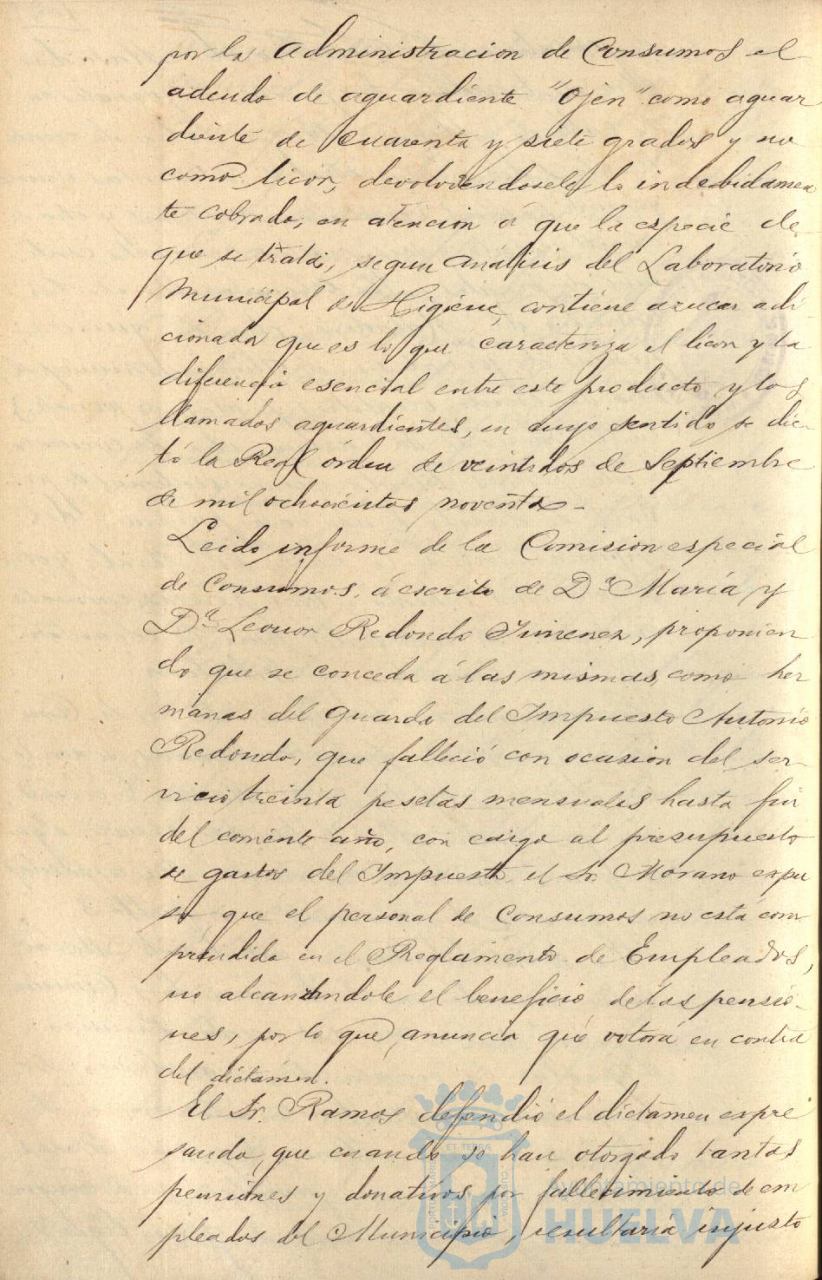 por la Administracion de Consumos el
adeudo de aguardiente "Ojen" como aguar
diente de cuarenta y siete grados y no
como licor, devolviendosele lo indebidamen
te cobrado, en atencion á que la especie de
que se trata, segun análisis del Laboratorio
Municipal de Higiene, contiene azucar adi
cionada que es lo que caracteriza el licor y la
diferencia esencial entre este producto y los
llamados aguardientes, en cuyo sentido se dic
tó la Real órden de veintidos de Septiembre
de mil ochocientos noventa-
Leido informe de la Comision especial
de Consumos, á escrito de Dª María y
Dª Leonor Redondo Jimenez, proponien
do que se conceda á las mismas como her
manas del guarda del Impuesto Antonio
Redondo, que falleció con ocasion del ser-
vicio treinta pesetas mensuales hasta fin
del corriente año, con cargo al presupuesto
de gastos del Impuesto, el Sr. Morano expu
so que el personal de Consumos no está com
prendido en el Reglamento de Empleados,
no alcanzandole el beneficio de las pensio-
nes, por lo que anuncia que votará en contra
del dictámen.
El Sr. Ramos defendió el dictámen expre
sando, que cuando se han otorgado tantas
pensiones y donativos por fallecimiento de em
pleados del Municipio, resultaría injusto
Ayuntamiento de
HUELVA